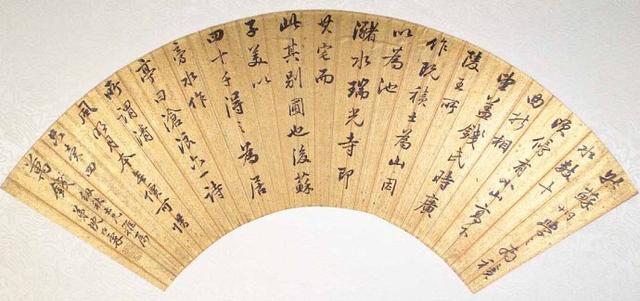 此蘇州學南積
水數十
傍有小山高下
曲折相
望蓋錢氏時廣
陵王所
作既積土為山因
以為池
瀦水瑞光寺即
其宅而
此其別圃也後蘇
子美以
四十千得之為居
旁水作
亭曰滄浪六一詩
所謂清
風明月本無價可惜
只賣四
萬錢